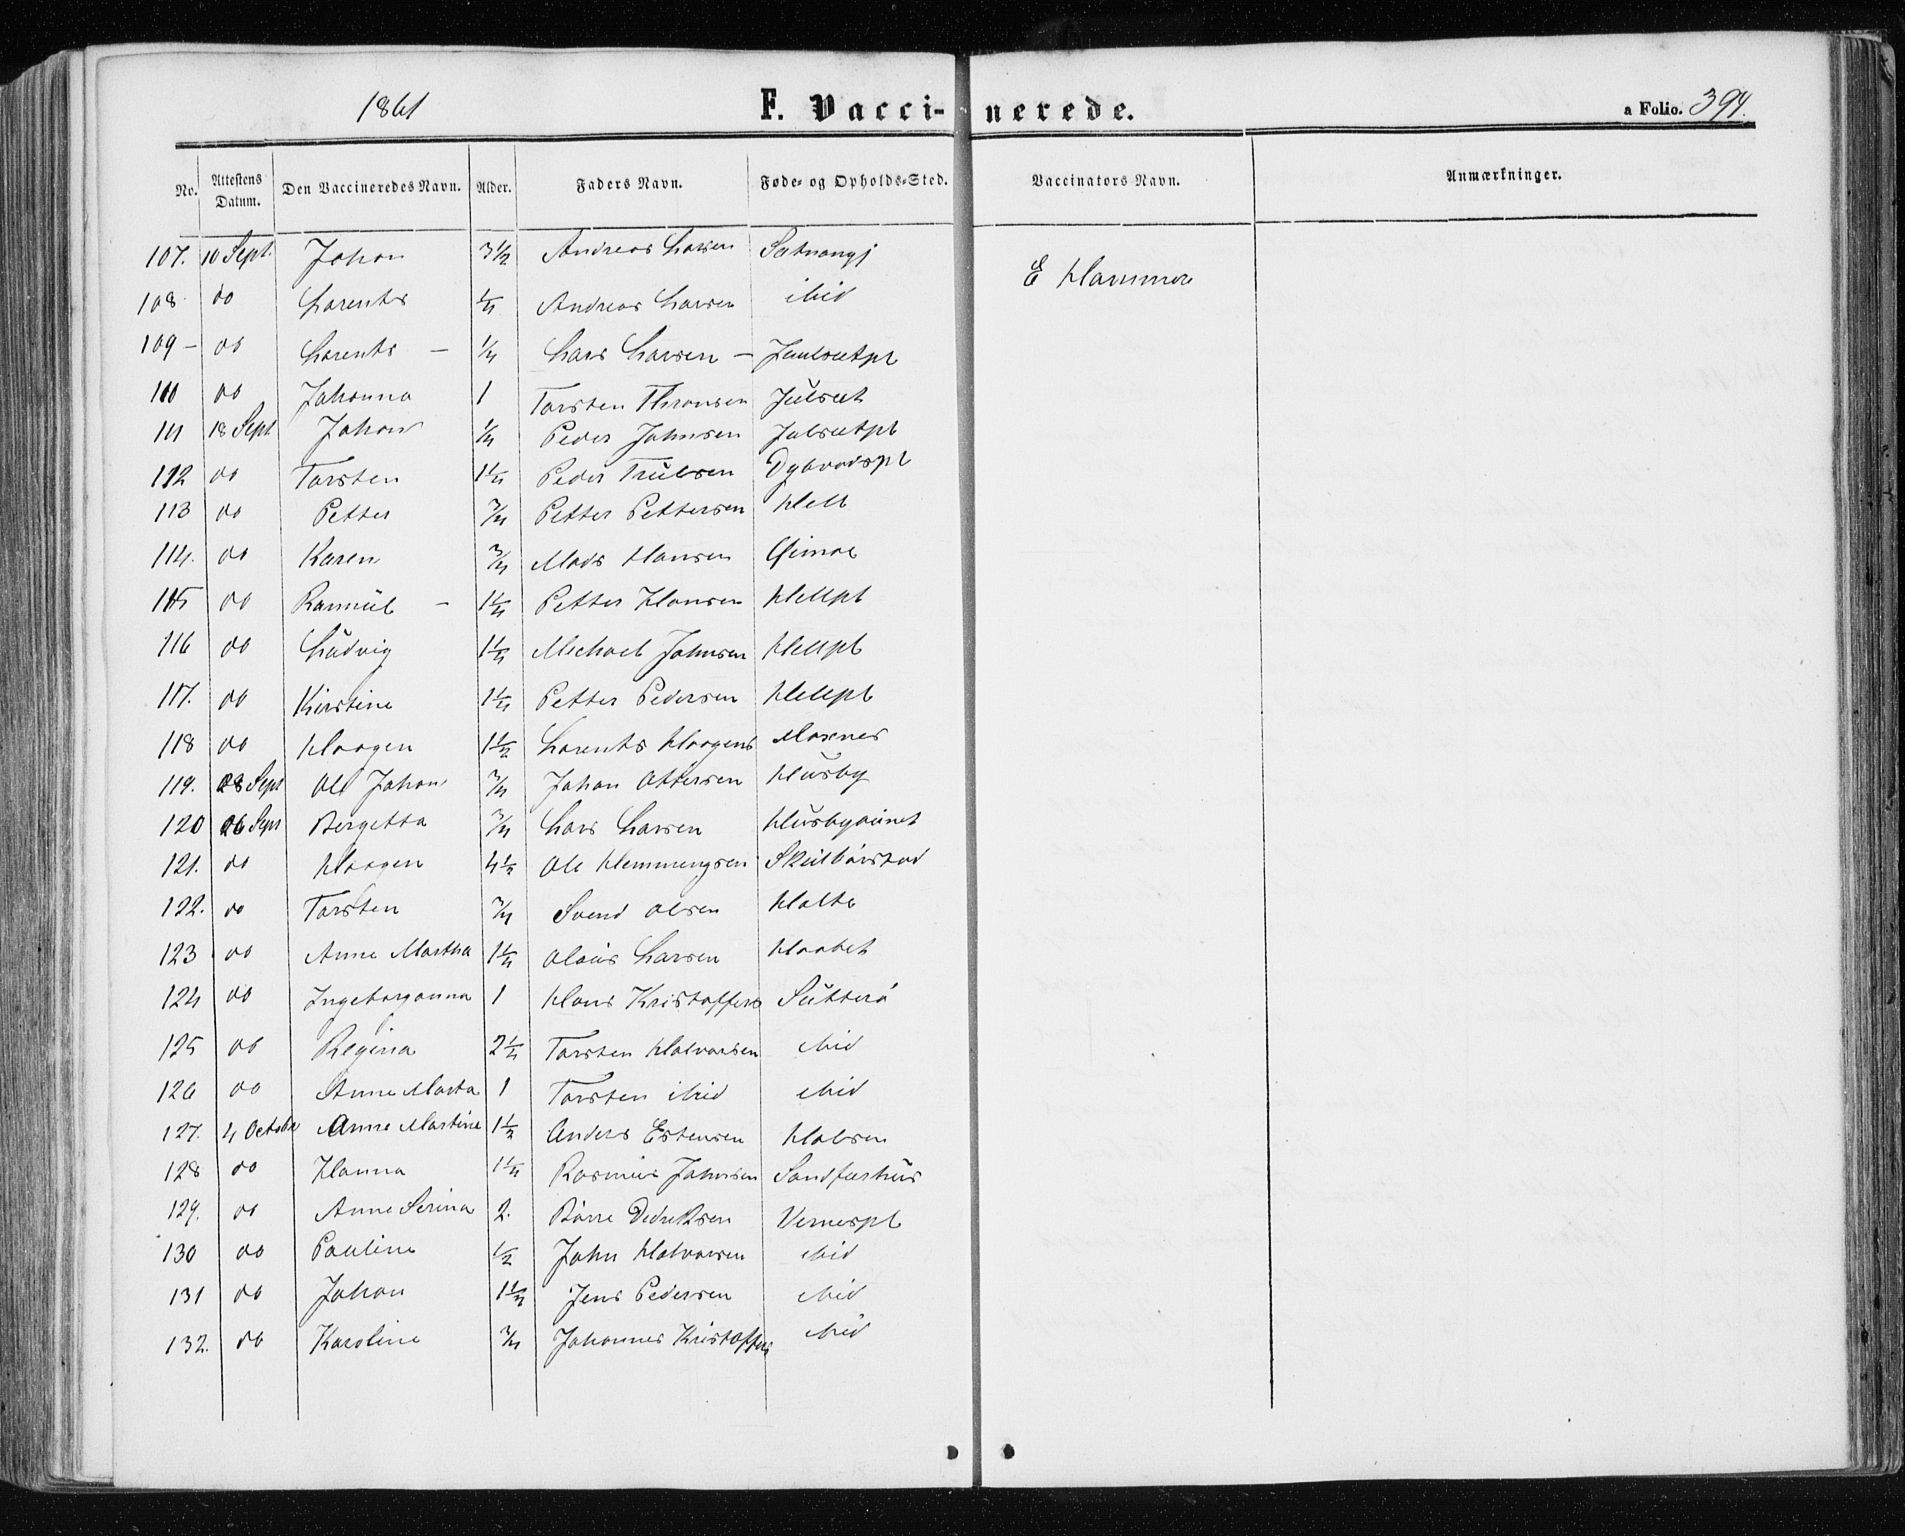 1861 F. Vaccinerede. a Folio. 394.
No. Attestens Datum. Den Vaccineredes Navn. Alder. Faders Navn. Føde- og Opholds-Sted. Vaccinators Navn. Anmærkninger.
107. 10 Sept. Johan 3½ Andreas Larsen
E Hammer
108 do Lorents ¼ Andreas Larsen ibid
109 – do Lorents – ¼ Lars Larsen –
110 do Johanna 1 Torsten Thronsen Julset
111 18 Sept Johan ¼ Peder Johnsen Julsetpl
112 do Torsten 1¼ Peder Trulsen Dybvadspl
113 do Petter ¾ Petter Pettersen Hell
114. do Karen ¾ Mads Hansen Gimse
115 do 1¼ Petter Hansen Hellpl
116 do Ludvig 1¼ Michael Johnsen Hellpl
117. do Kirstine 1¼ Petter Pedersen Hellpl
118 do Haagen 1½ Lorents Haagens Moxnes
119. 28 Sept Ole Johan ¾ Johan Ottersen Husby
120 26 Sept Bergetta ¾ Lars Larsen Husbyaunet
121. do Haagen 4½ Ole Hemmingsen Skulbørstad
122. do Torsten ¾ Svend Olsen
123 do Anne Martha 1¼ Olaus Larsen
124 do Ingeborganna 1 Hans Kristoffers Sutterø
125 do Regina 2¼ Torsten Halvorsen ibid
126 do Anne Marta 1 Torsten ibid ibid
127. 4 October Anne Martine 1½ Anders Estensen Halsen
128 do Hanna 1¼ Rasmus Johnsen Sandfærhus
129. do Anne Serina 2. Børre Dedreksen Vernespl
130 do Pauline ½ John Halvorsen ibid
131 do Johan 1½ Jens Pedersen ibid
132. do Karoline ¾ Johannes Kristoffers ibid